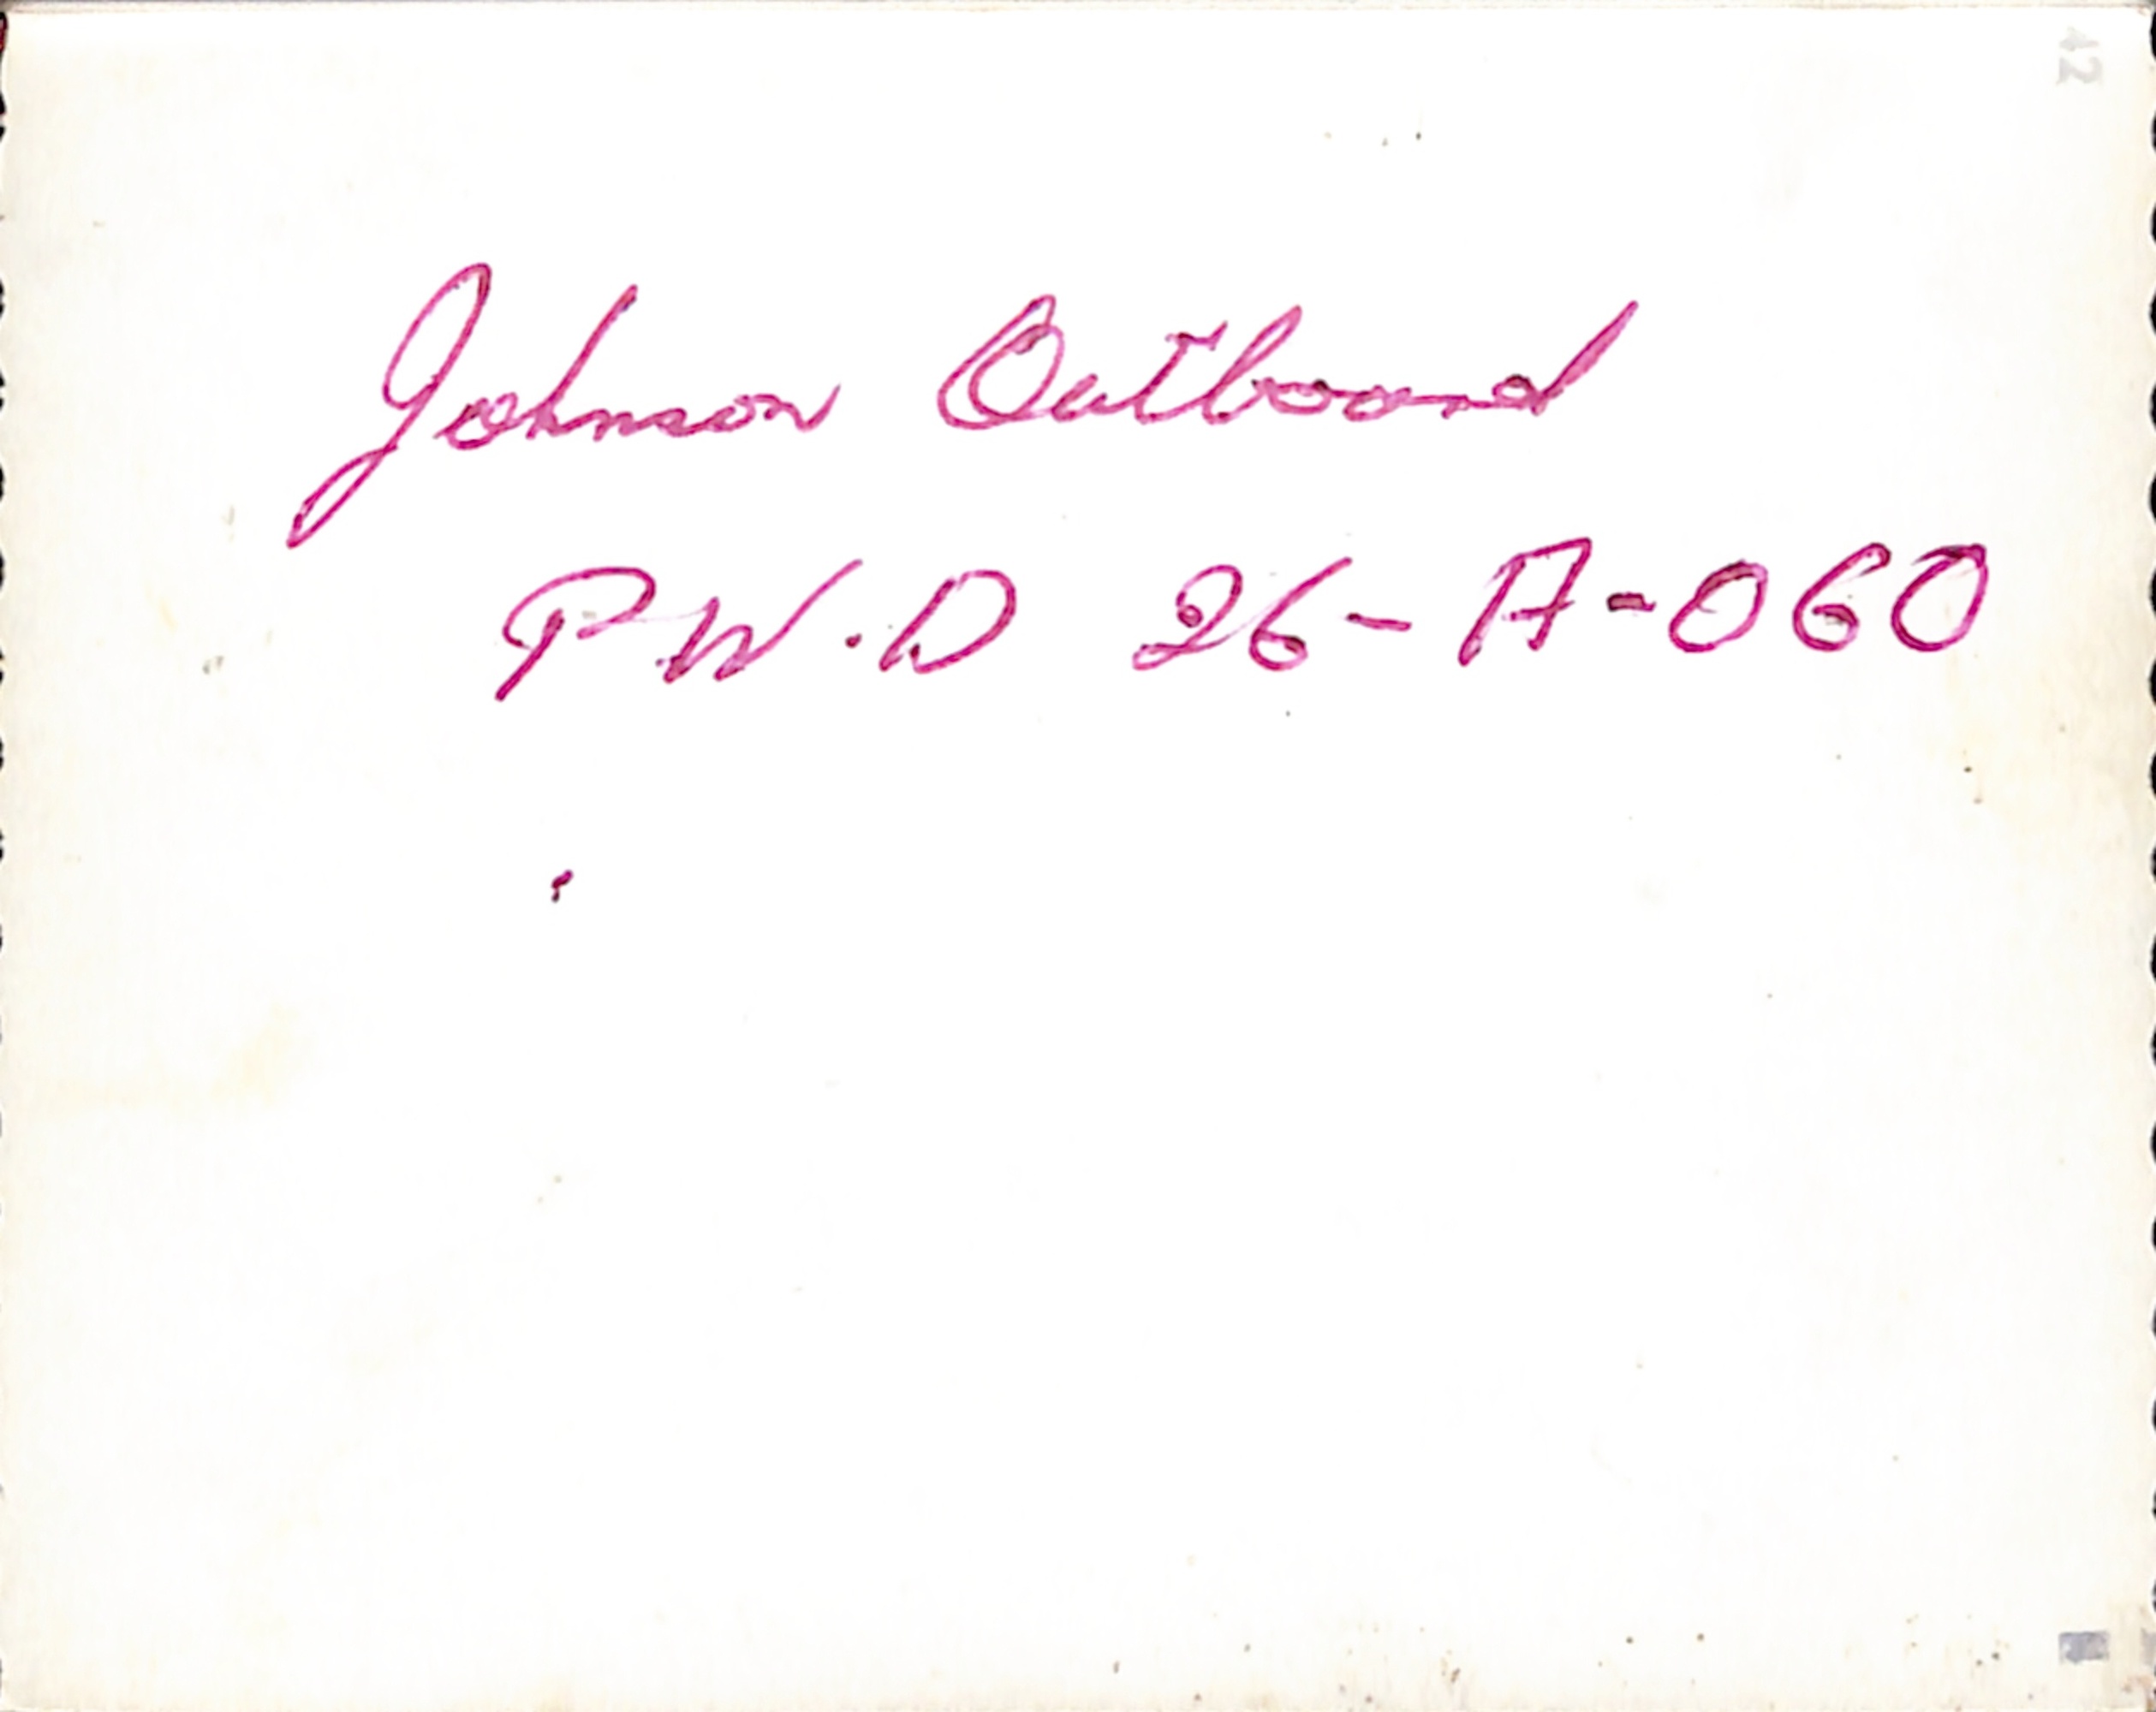 42
Johnson Outboard
P.W.D 26-A-060